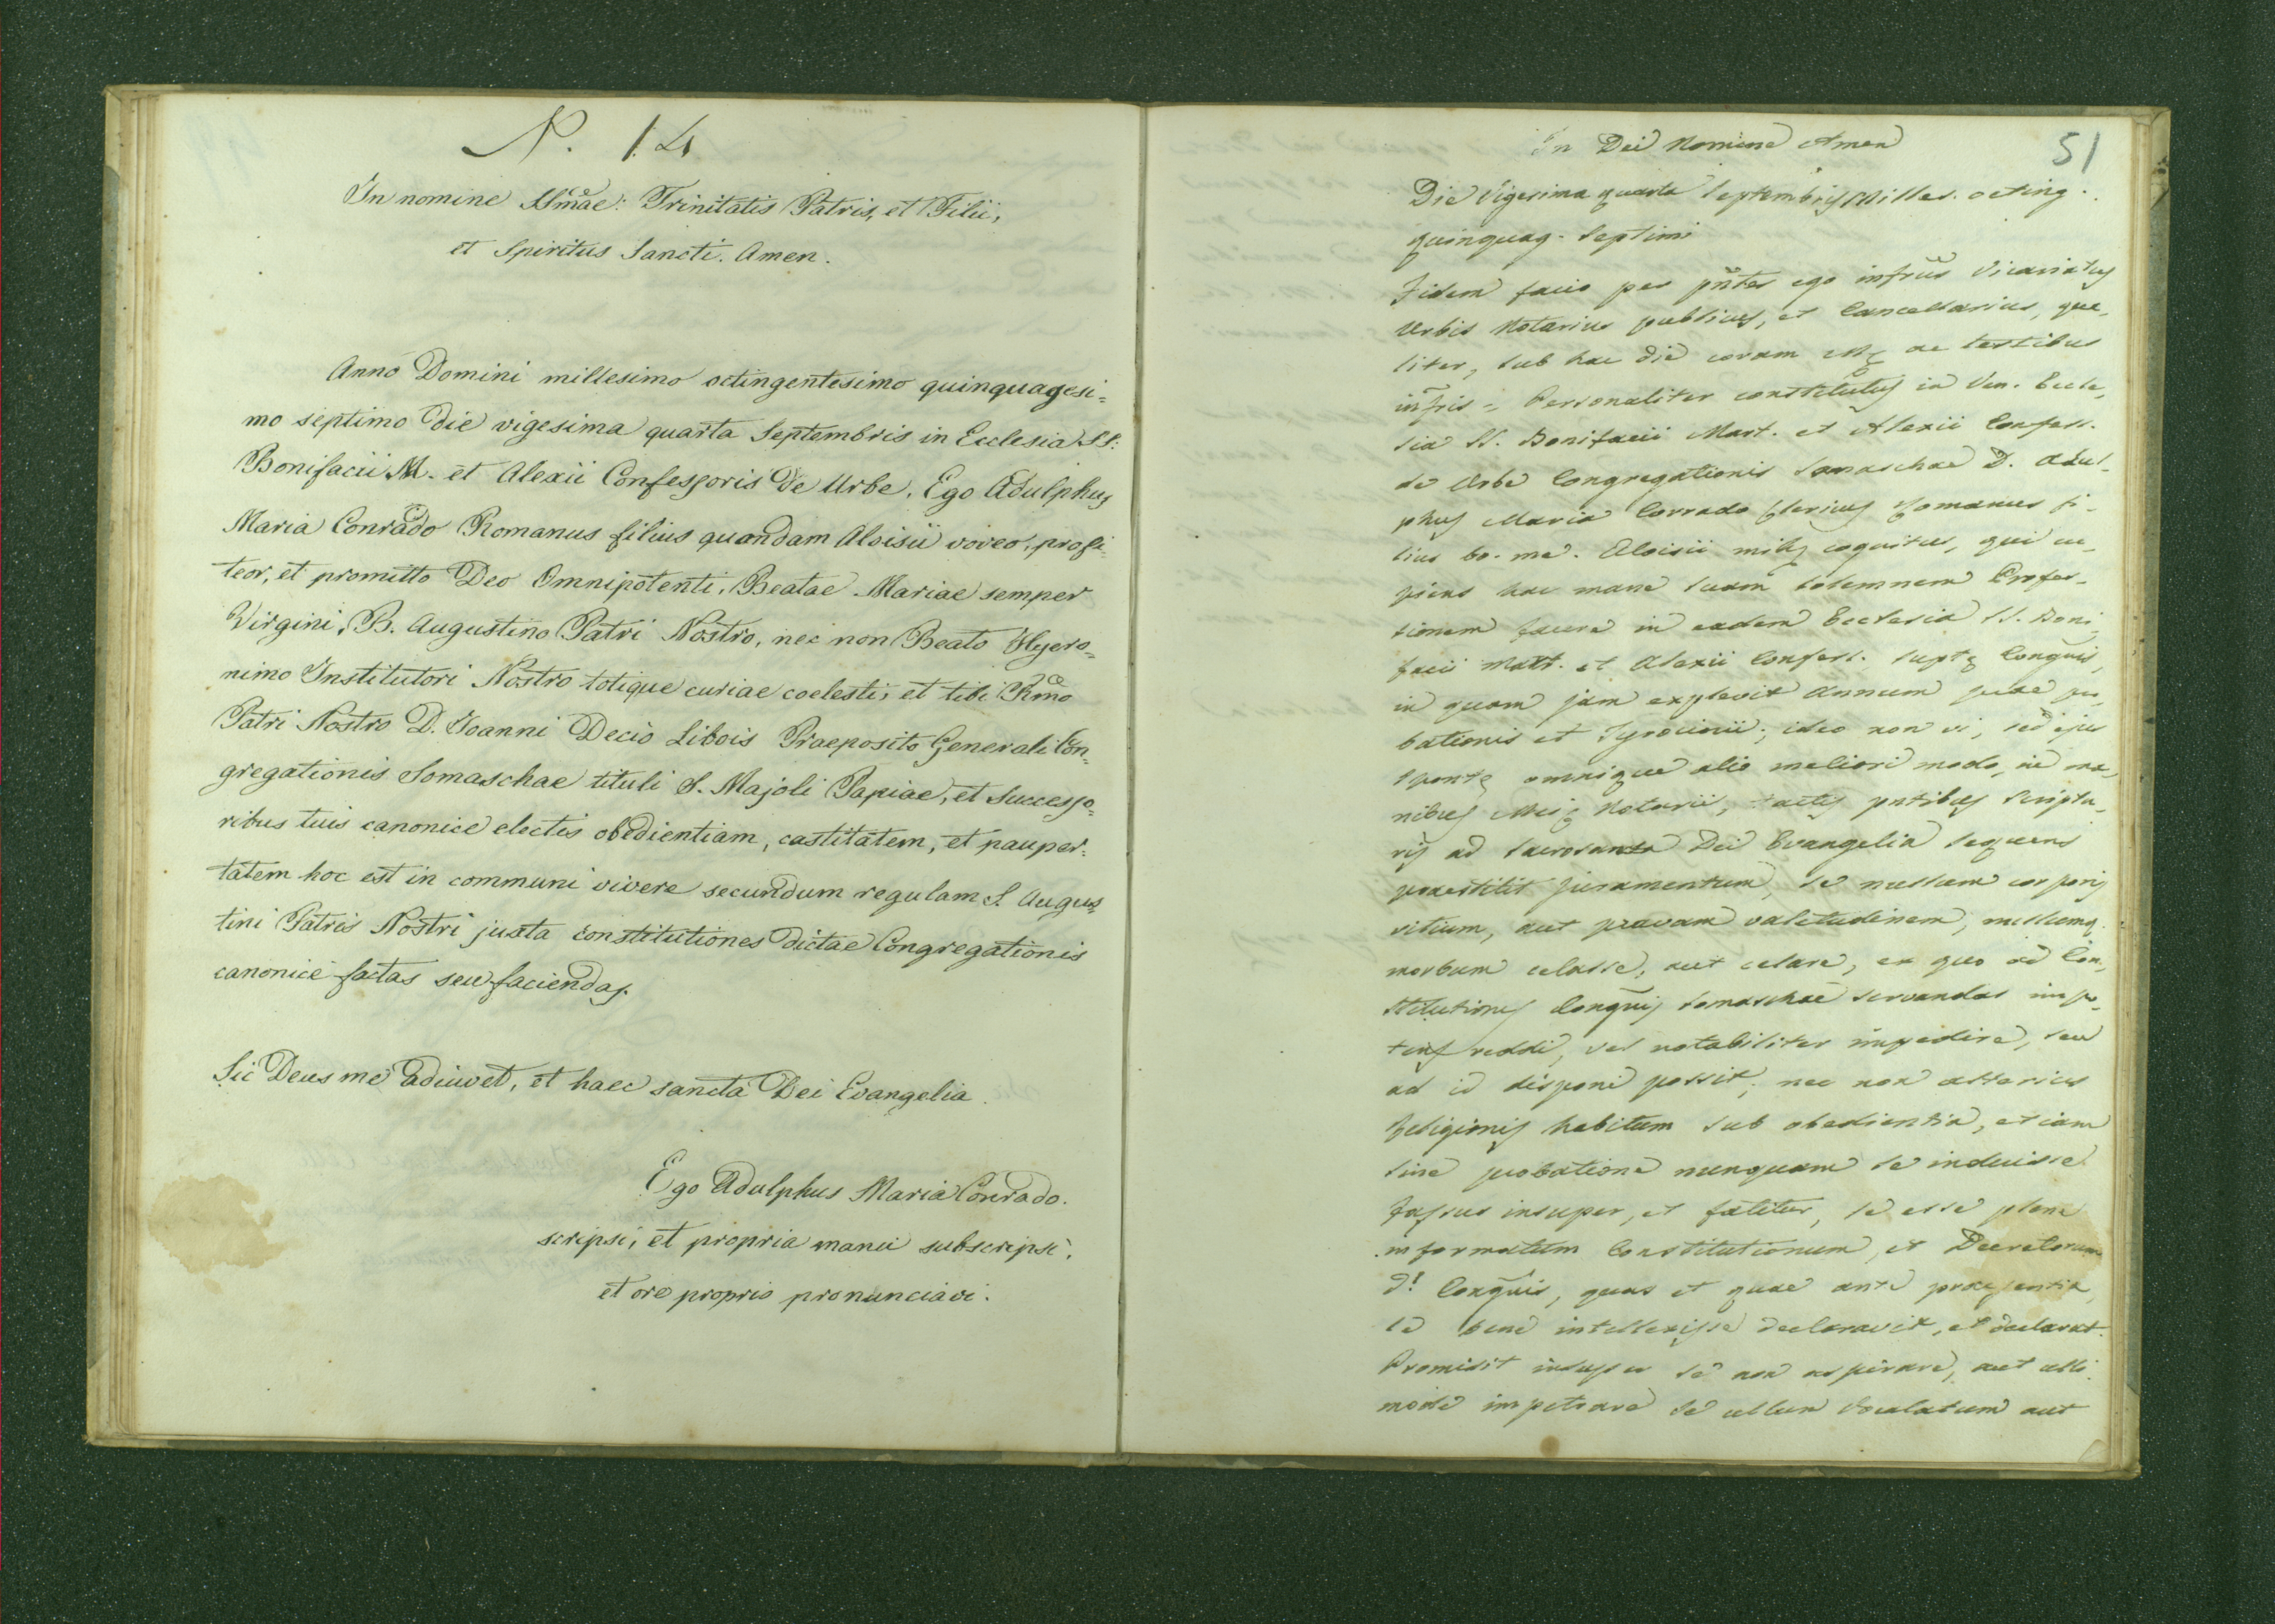 N. 14
In nomine SSmae: Trinitatis Patris, et Filii,
et Spiritus Sancti. Amen.
Anno Domini millesimo octingentesimo quinquagesi=
mo septimo die vigesima quarta Septembris in Ecclesia SS:
Bonifacii M. et Alexii Confessoris de Urbe. Ego Adulphus
Maria Conrado Romanus filius quondam Aloisii voveo, profi-
teor, et promitto Deo Omnipotenti, Beatae Mariae semper
Virgini, B. Augustino Patri Nostro, nec non Beato Hyero=
nimo Institutori Nostro totique curiae coelesti, et tibi Rmo
Patri Nostro D. Joanni Decio Libois Praeposito Generali Con=
gregationis Somaschae tituli S. Majoli Papiae, et successo=
ribus tuis canonice electis obedientiam, castitatem, et pauper=
tatem hoc est in communi vivere secundum regulam S. Augus=
tini Patris Nostri juxta constitutiones dictae Congregationis
canonice factas seu faciendas.
Sic Deus me adiuvet, et haec sancta Dei Evangelia.
Ego Adulphus Maria Conrado.
scripsi, et propria manu subscripsi,
et ore proprio pronunciavi.
51
In Dei Nomine Amen
Die Vigesima quarta Septembris Milles. octing.
quinquag. septimi
Fidem facio per pntes ego infrus Vicariatus
Urbis Notarius publicus, et Cancellarius, qua-
liter, sub hac die coram me ac testibus
infris = Personaliter constitutus in Ven. Eccle-
sia SS. Bonifacii Mart. et Alexii Confess.
de Urbe Congregationis Somaschae D. Adul-
phus Maria Corrado Clericus Romanus fi-
lius bo. me. Aloisii mihi cognitus, qui cu-
piens hac mane suam solemnem Profes-
sionem facere in eadem Ecclesia SS. Boni-
facii Mart. et Alexii Confess. suptae Congnis,
in quam jam explevit annum suae pro-
bationis et Tyrocinii; ideo non vi, sed ejus
sponte omnique alio meliori modo, in ma-
nibus Mei Notarii, tactis pntibus Scriptu-
ris ad sacrosanta Dei Evangelia sequens
praestitit juramentum, se nullum corporis
vitium, aut pravam valetudinem, nullumq.
morbum celasse, aut celare, ex quo ad Con-
stitutiones Congnis Somaschae servandas impo-
tens reddi, vel notabiliter impedire, seu
ad id disponi possit; nec non alterius
Religionis habitum sub obedientia, etiam
sine probatione nunquam se induisse
Fassus insuper, et fatetur, se esse plene
informatum Constitutionum, et Decretorum
d. Congnis, quas et quae ante praesentia
se bene intellexisse declaravit, et declarat.
Promisit insuper se non aspirare, aut ulli
mode impetrare se ullum Praelatum aut